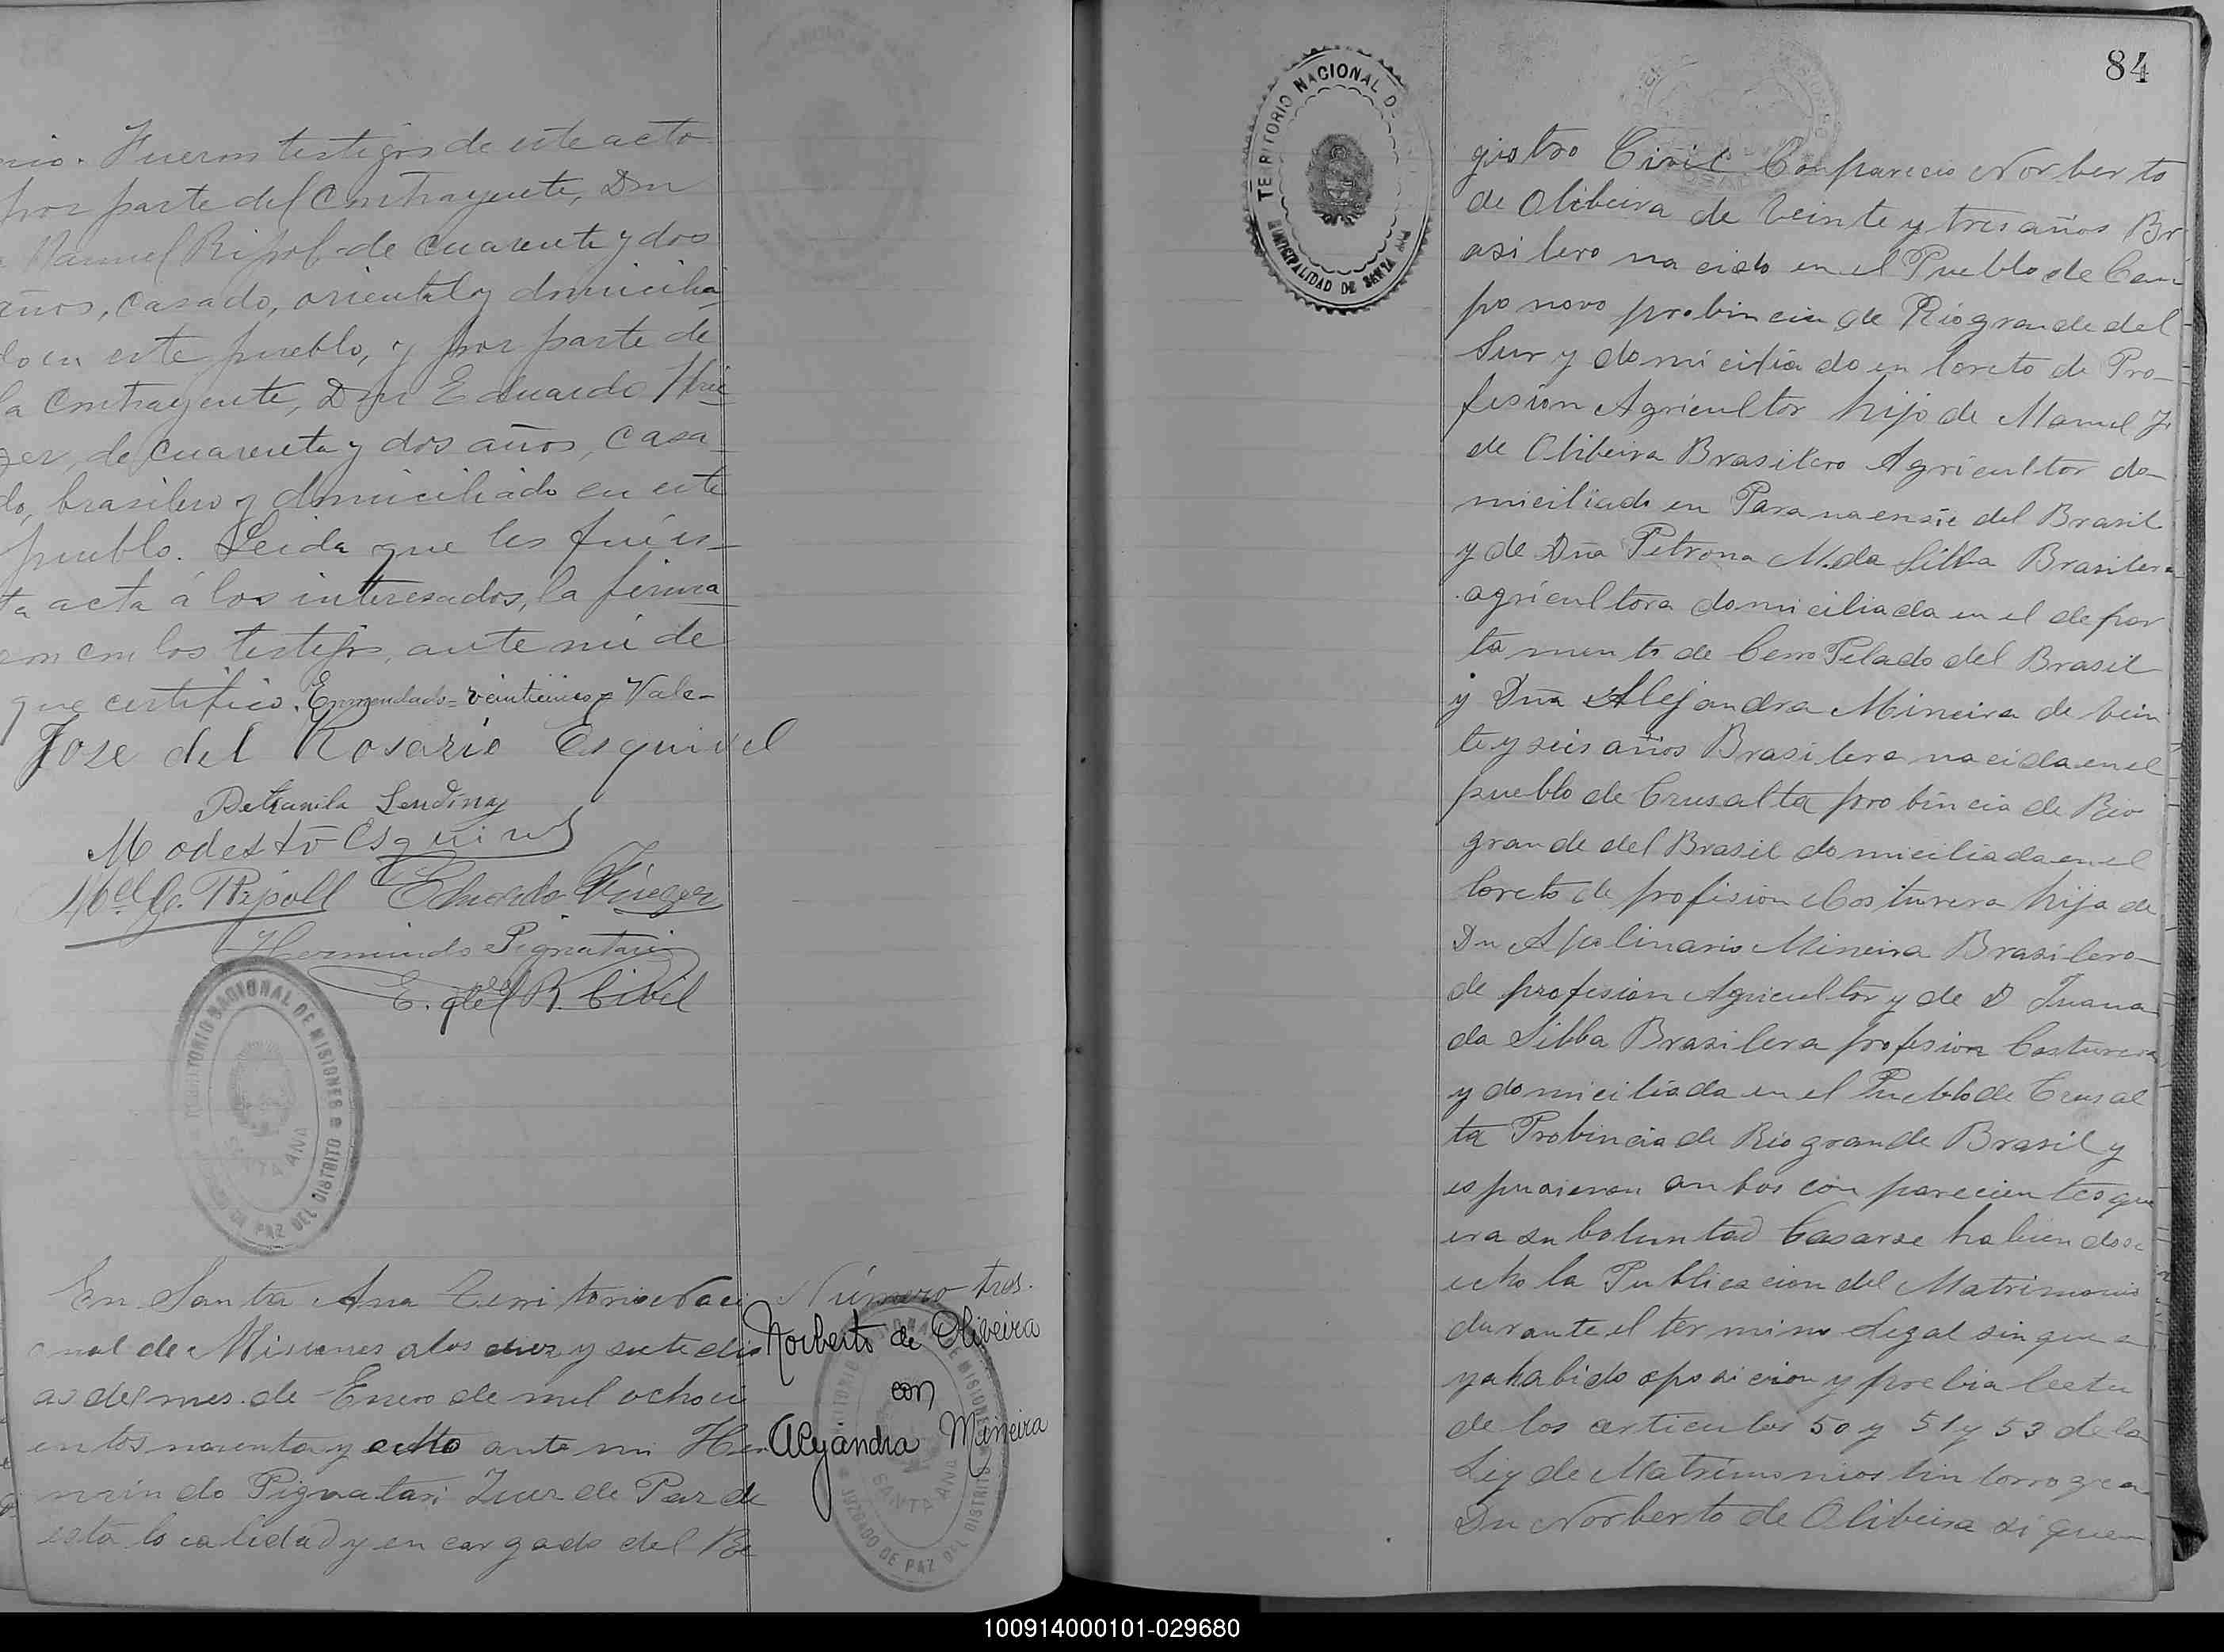 nio. Fueron testigos de este acto
por parte del Contrayente, Dn
Manuel Ripol de cuarenta y dos
años, casado, oriental y domicilia
do en este pueblo, y por parte de
la Contrayente, Don Eduardo
de cuarenta y dos años, casa
do, brasilero y domiciliado en este
pueblo. Leida que les fué es-
ta acta á los interesados, la firma
ron con los testigos, ante mi de
que certifico. Enmendado = veinticinco = Vale-
Jose del Rosario Esquivel
Modesto Esquivel
Mel G. Ripoll Eduardo
Hermindo Pignatari
E. del R. Civil
TERRITORIO NACIONAL DE MISIONES
JUZGADO DE PAZ DEL DISTRITO
SANTA ANA
En Santa Ana Territorio Naci
onal de Misiones a los diez y siete di
as del mes de Enero de mil ochoci
entos noventa y ocho ante mi Her
mindo Pignatari Juez de Paz de
esta localidad y encargado del Re
Número tres.
Norberto de Oliveira
con
Alejandra Mineira
TERRITORIO NACIONAL DE MISIONES
JUZGADO DE PAZ DEL DISTRITO
SANTA ANA
84
TERRITORIO NACIONAL DE
MUNICIPALIDAD DE SANTA ANA
gistro Civil Conparecio Norberto
de Olibeira de beinte y tres años Br
asilero nacido en el Pueblo de Cam
po novo probincia de Riogrande del
Sur y domiciliado en loreto de Pro-
fesion Agricultor hijo de Manuel J.
de Olibeira Brasilero Agricultor do-
miciliado en Paranaensie del Brasil
y de Dña Petrona M. da Silba Brasilera
agricultora domiciliada en el depar
tamento de Cerro Pelado del Brasil
y Dña Alejandra Mineira de bein
te y seis años Brasilera nacida en el
pueblo de Crusalta probincia de Rio
grande del Brasil domiciliada en el
loreto de profision Costurera hija de
Dn Apolinario Mineira Brasilero
de profesion Agricultor y de D Juana
da Silba Brasilera profesion Costurera
y domiciliada en el Pueblo de Crusal
ta Probincia de Riogrande Brasil y
espusieron anbos conparecientes que
era su boluntad Casarse habiendose
echo la Publicacion del Matrimonio
durante el termino Legal sin que a
ya habido oposicion y prebia lectu
de los articulos 50 y 51 y 53 de la
Ley de Matrimonios Dn
Dn Norberto de Olibeira si quen
100914000101-029680